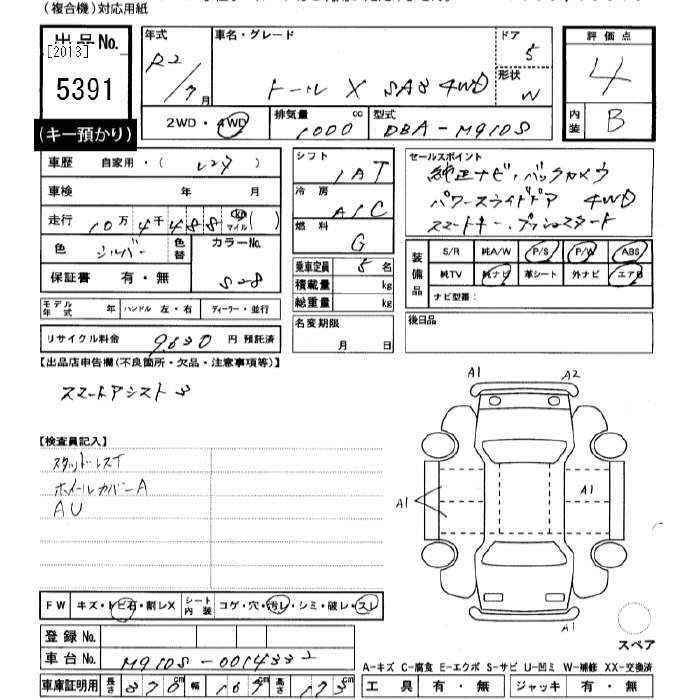 (複合機)対応用紙
出品No.
[2013]
5391
(キー預かり)
年式 R2/7月
車名・グレード トール X SAⅢ 4WD
ドア 5
形状 W
評価点 4
内装 B
2WD・4WD
排気量 1000 cc
型式 DBA-M910S
車歴 自家用・(レンタ)
車検 年 月
走行 10万4千488 km マイル ( )
色 シルバー 色替 カラーNo. S28
保証書 有・無
モデル年式 年 ハンドル 左・右 ディーラー・並行
リサイクル料金 9,630 円 預託済
シフト IAT
冷房 A/C
燃料 G
乗車定員 5 名
積載量 kg
総重量 kg
名変期限 月 日
セールスポイント
純正ナビ・バックカメラ
パワースライドドア 4WD
スマートキー・プッシュスタート
装備品
S/R 純A/W P/S P/W ABS
純TV 純ナビ 革シート 外ナビ エアB
ナビ型番:
後日品
【出品店申告欄(不良箇所・欠品・注意事項等)】
スマートアシスト3
【検査員記入】
スタッドレスT
ホイールカバーA
AU
A1 A2
A1
A1
A1
FW キズ・トビ石・割レX シート内装 コゲ・穴・汚レ・シミ・破レ・スレ
登録No.
車台No. M910S-0014332
車庫証明用 長さ 370 cm 幅 167 cm 高さ 173 cm
スペア
A-キズ C-腐食 E-エクボ S-サビ U-凹ミ W-補修 XX-交換済
工具 有・無 ジャッキ 有・無